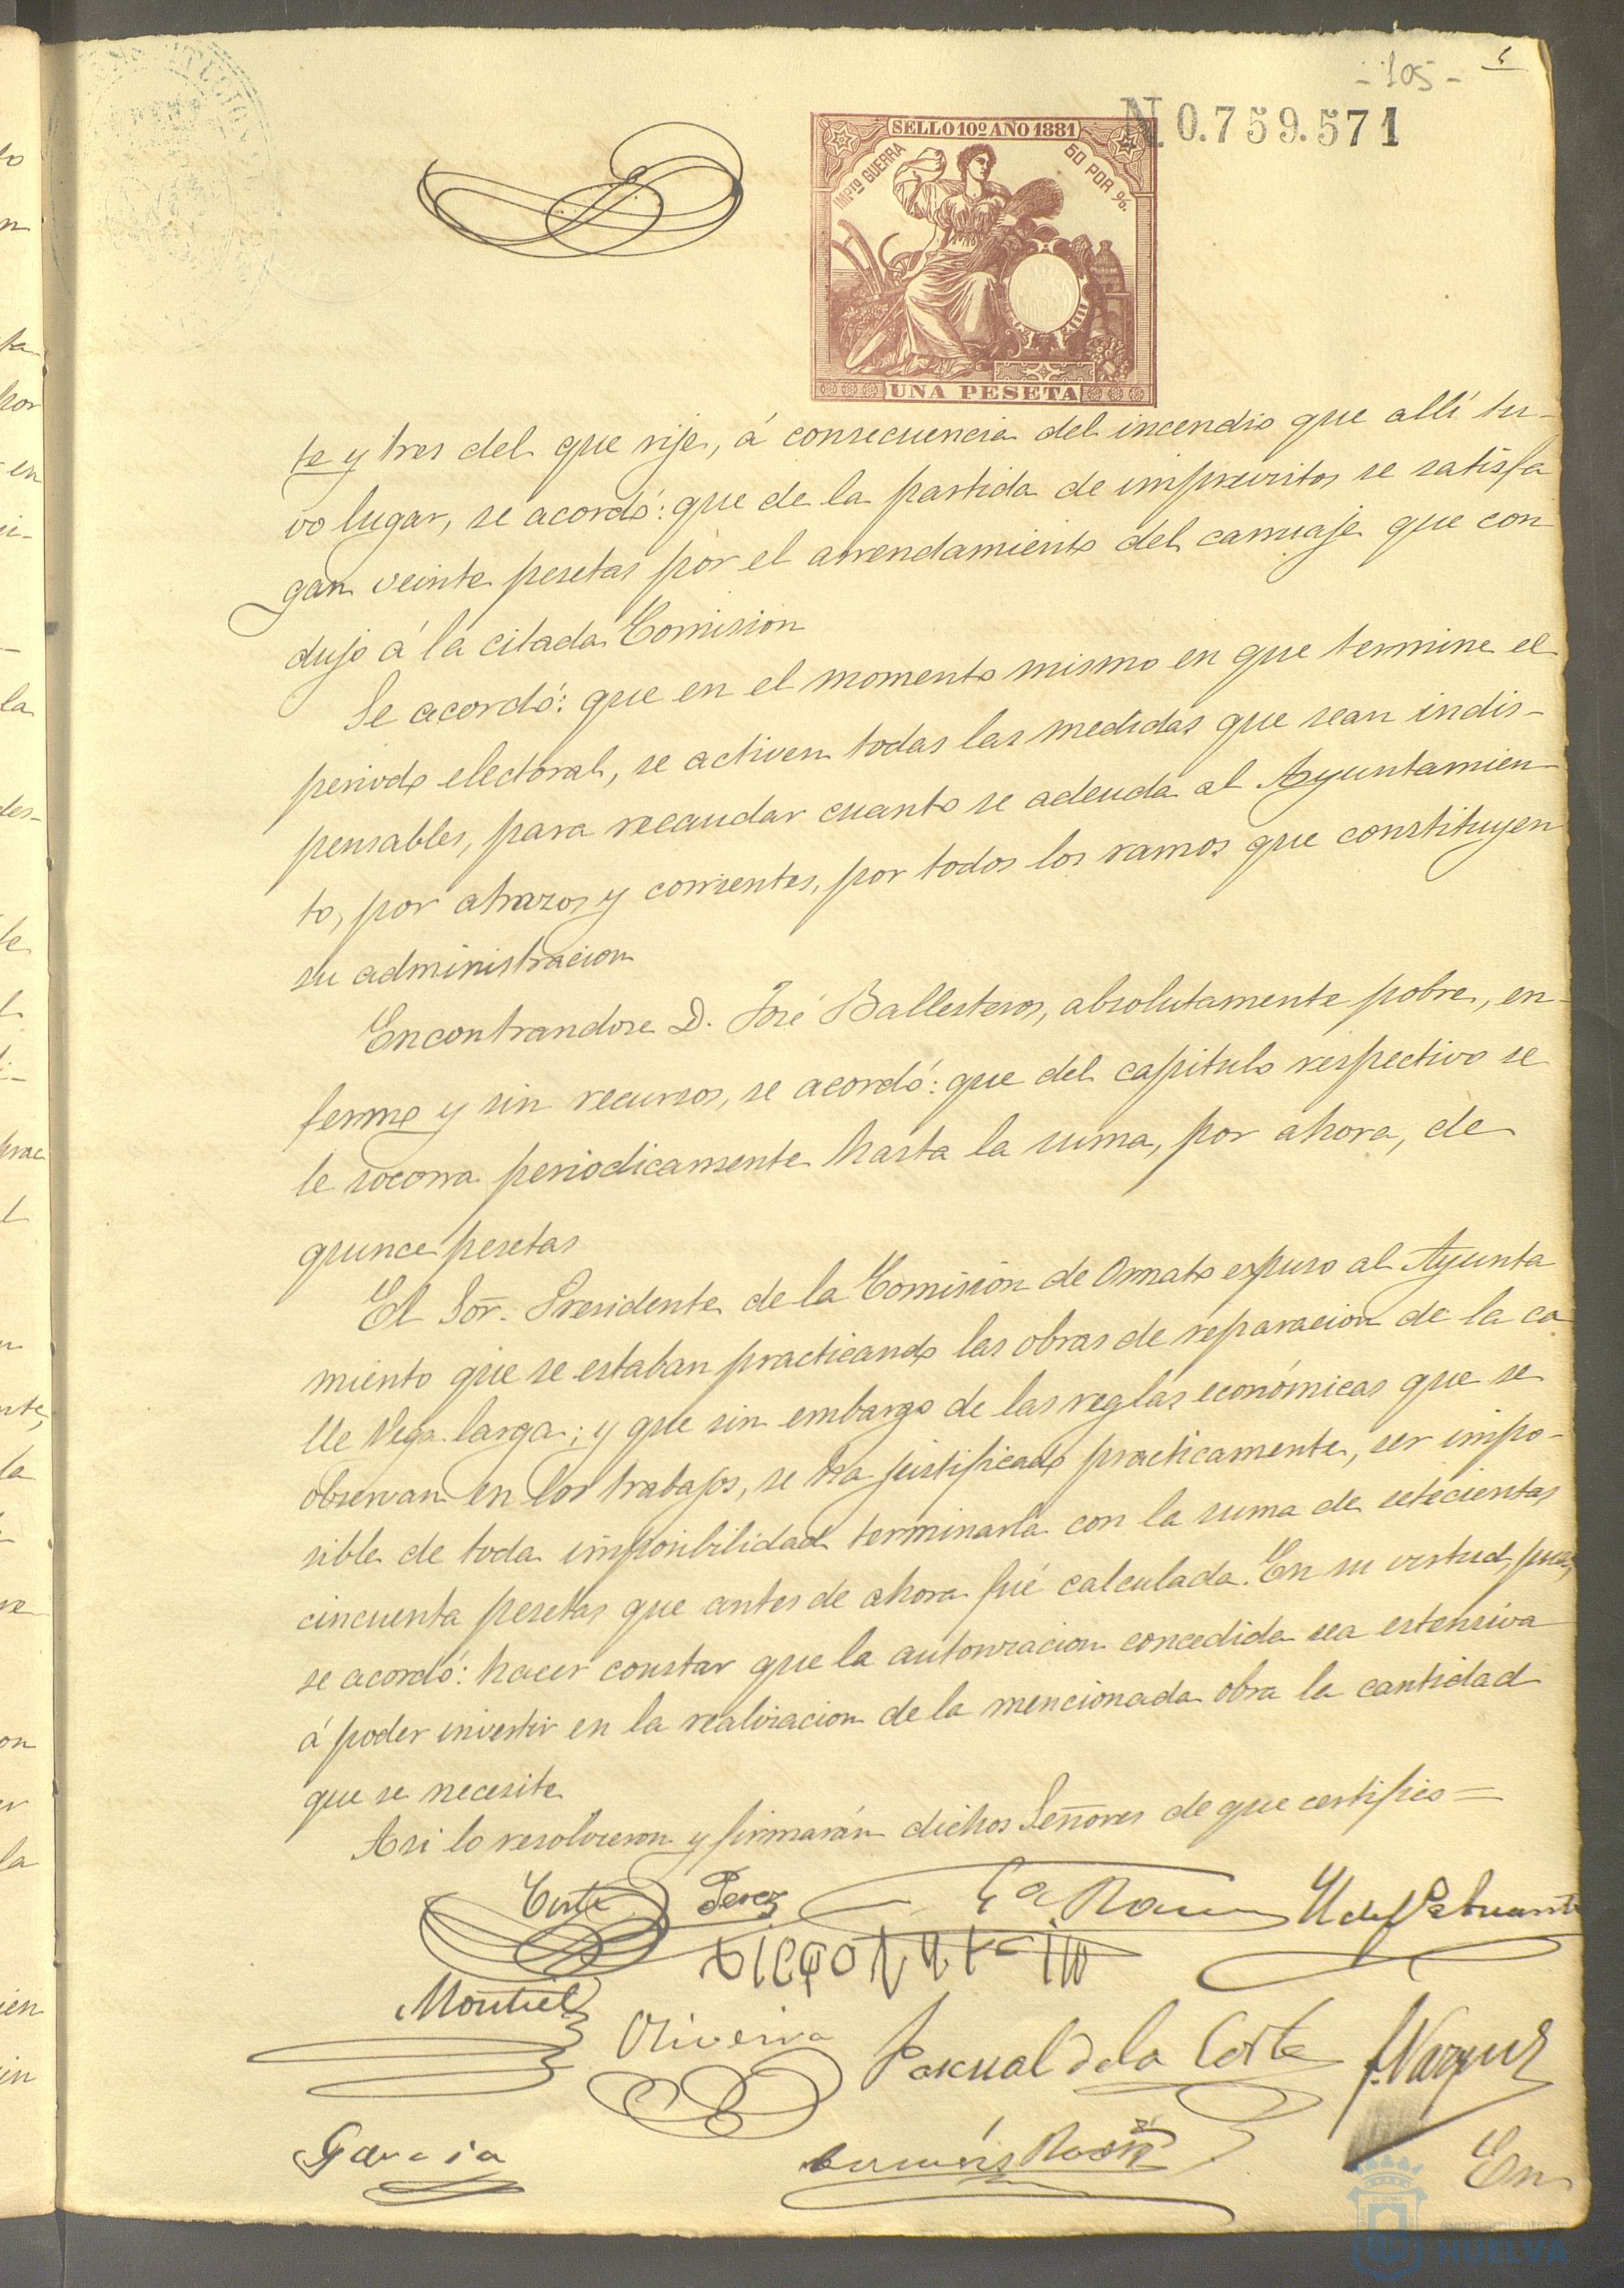 - 105 -
N. 0.759.571
SELLO 10º AÑO 1881
IMPTO GUERRA
50 POR %
UNA PESETA
te y tres del que rije, á consecuencia del incendio que allí tu-
vo lugar, se acordó: que de la partida de imprevistos se satisfa
gan veinte pesetas por el arrendamiento del carruaje que con
dujo á la citada Comision
Se acordó: que en el momento mismo en que termine el
periodo electoral, se activen todas las medidas que sean indis-
pensables, para recaudar cuanto se adeuda al Ayuntamien-
to, por atrazos y corrientes, por todos los ramos que constituyen
su administracion
Encontrandose D. José Ballesteros, absolutamente pobre, en-
fermo y sin recursos, se acordó: que del capitulo respectivo se
le socorra periodicamente hasta la suma, por ahora, de
quince pesetas
El Sor. Presidente de la Comisión de Ornato expuso al Ayunta
miento que se estaban practicando las obras de reparacion de la ca
lle Vega larga; y que sin embargo de las reglas económicas que se
observan en los trabajos, se ha justificado practicamente, ser impo-
sible de toda imposibilidad terminarla con la suma de setecientas
cincuenta pesetas que antes de ahora fué calculada. En su virtud, pues,
se acordó: hacer constar que la autorizacion concedida sea estensiva
á poder invertir en la realizacion de la mencionada obra la cantidad
que se necesite
Asi lo resolvieron y firmarán dichos Señores de que certifico =
Corte Perez Ga Ramos
Montiel Oliveira Pascual de la Corte F. Vazquez
Garcia
En
Ayuntamiento de
HUELVA